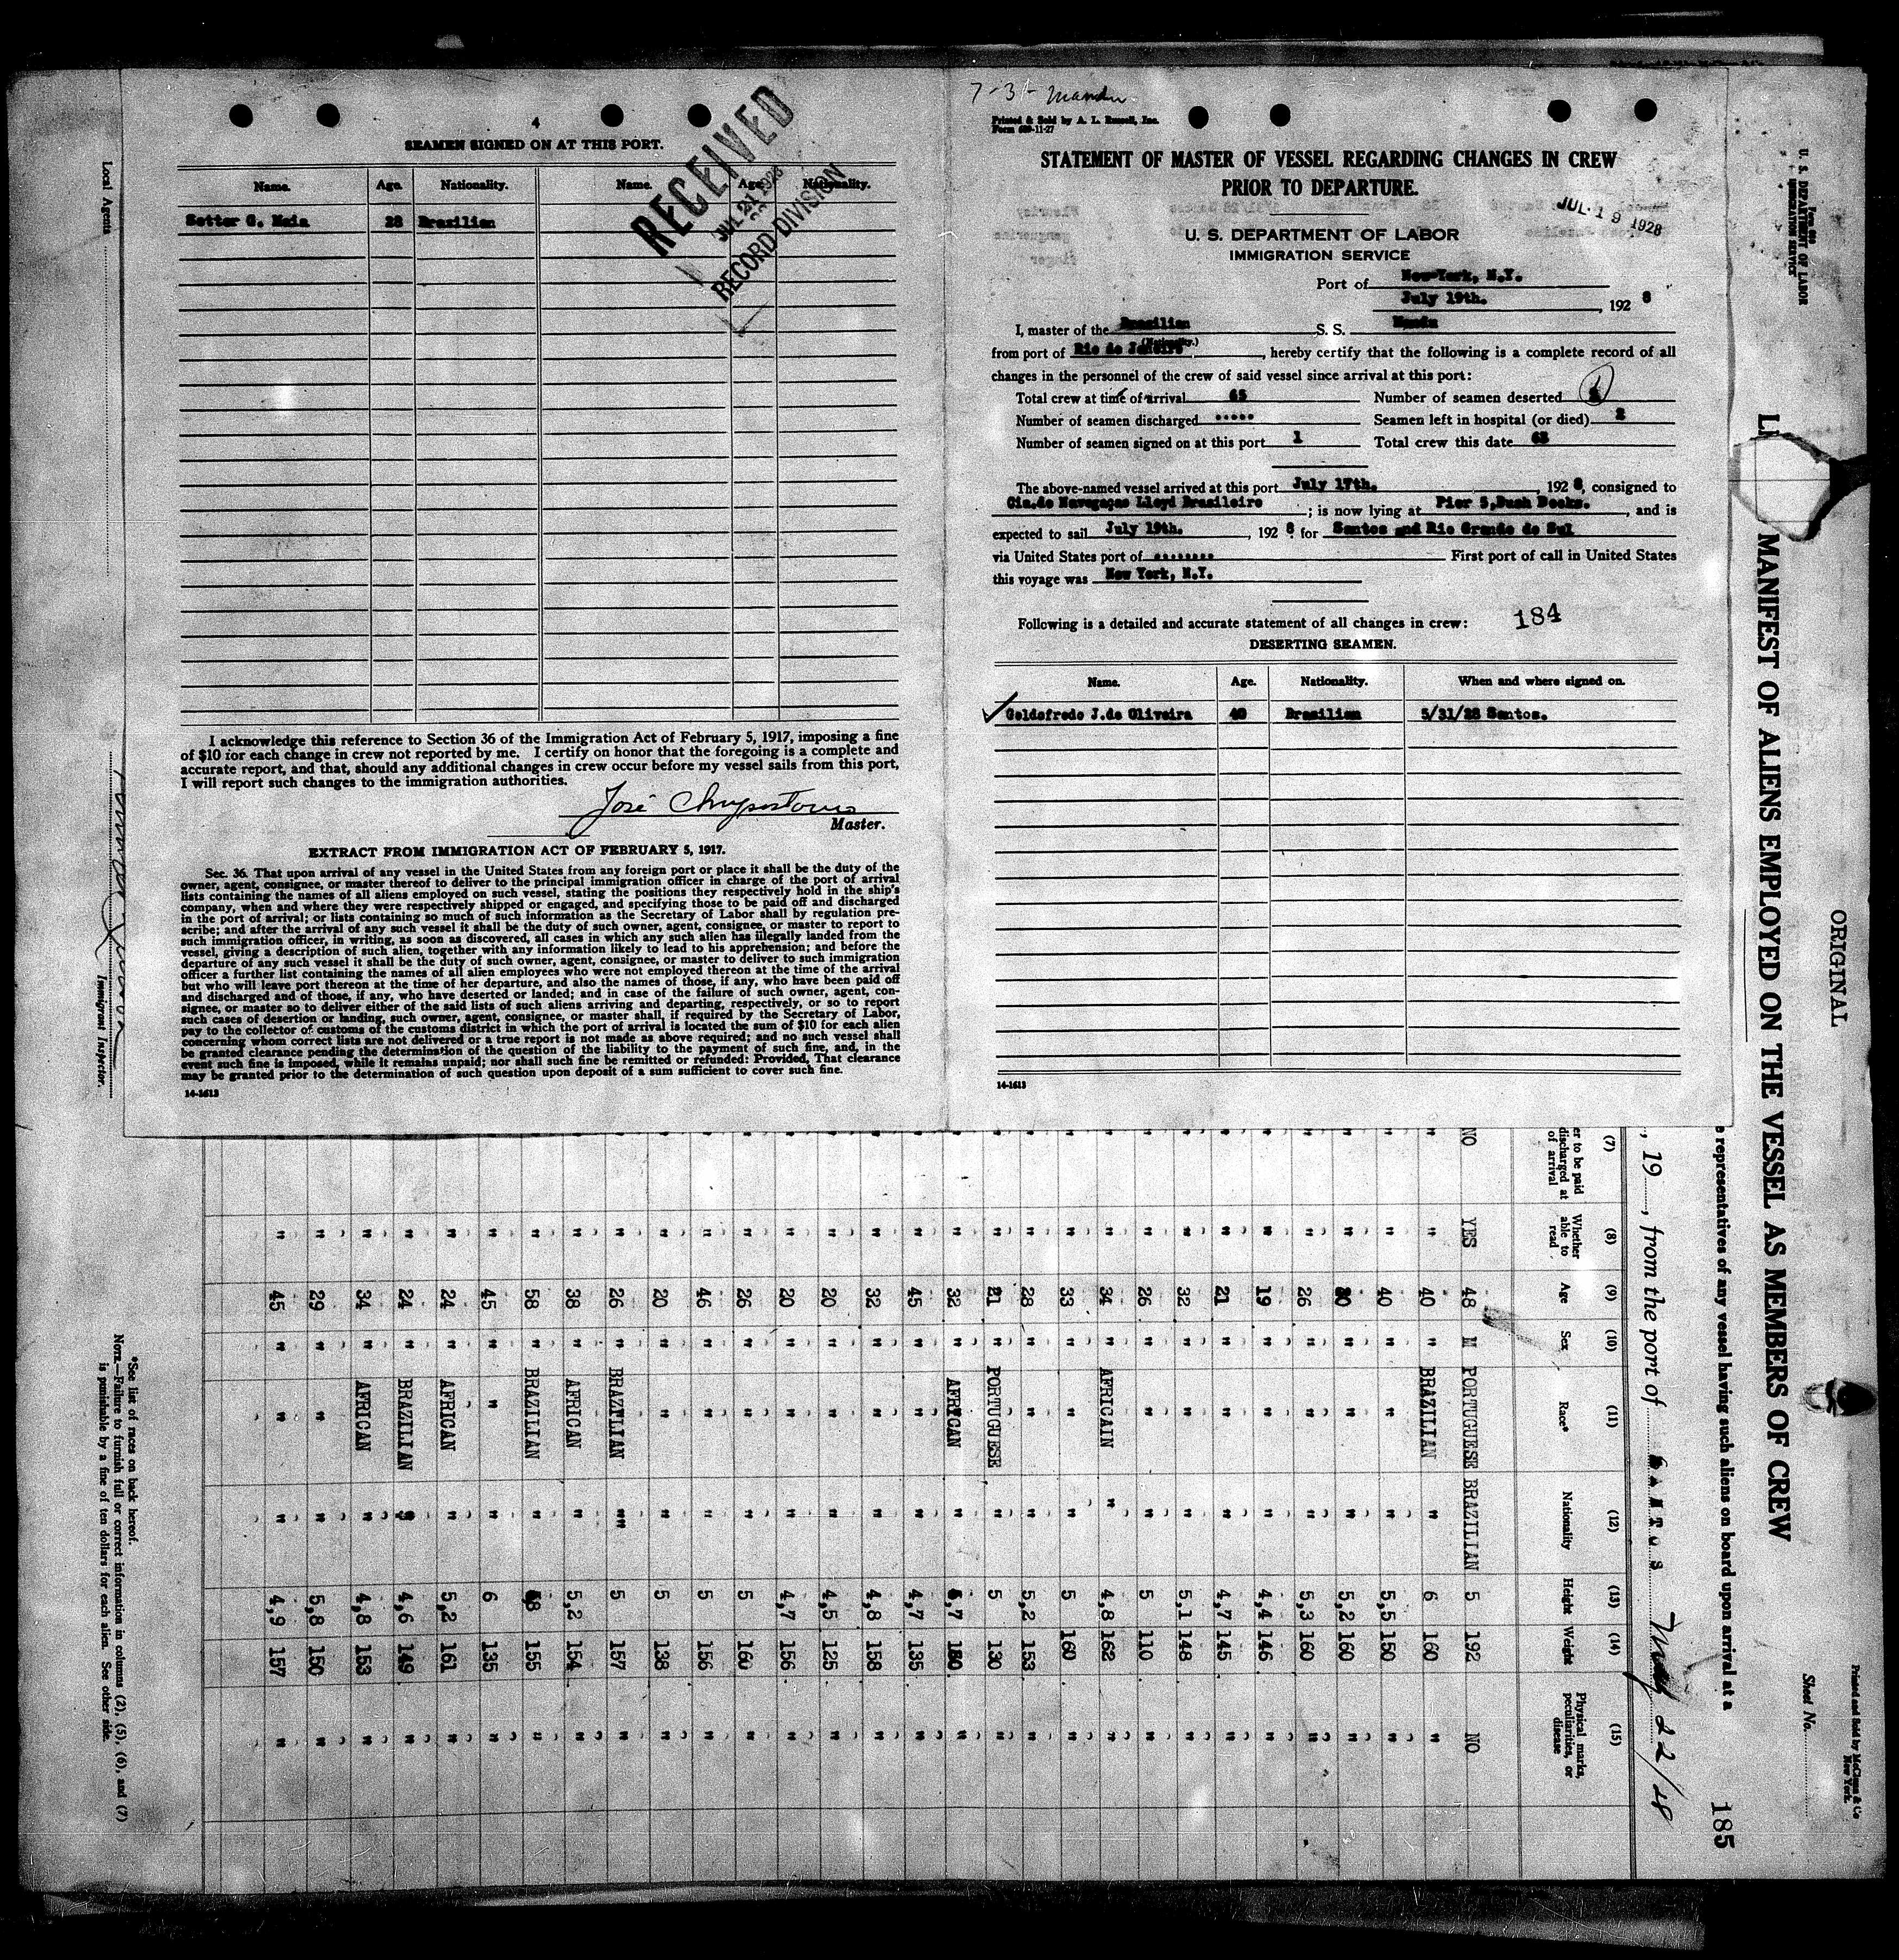 4
SEAMEN SIGNED ON AT THIS PORT.
Name. Age. Nationality. Name. Age. Nationality.
Setter G. Maia 28 Brazilian
RECEIVED
JUL 21 1928
RECORD DIVISION
I acknowledge this reference to Section 36 of the Immigration Act of February 5, 1917, imposing a fine
of $10 for each change in crew not reported by me. I certify on honor that the foregoing is a complete and
accurate report, and that, should any additional changes in crew occur before my vessel sails from this port,
I will report such changes to the immigration authorities.
José Chrysostomo
Master.
EXTRACT FROM IMMIGRATION ACT OF FEBRUARY 5, 1917.
Sec. 36. That upon arrival of any vessel in the United States from any foreign port or place it shall be the duty of the
owner, agent, consignee, or master thereof to deliver to the principal immigration officer in charge of the port of arrival
lists containing the names of all aliens employed on such vessel, stating the positions they respectively hold in the ship's
company, when and where they were respectively shipped or engaged, and specifying those to be paid off and discharged
in the port of arrival; or lists containing so much of such information as the Secretary of Labor shall by regulation pre-
scribe; and after the arrival of any such vessel it shall be the duty of such owner, agent, consignee, or master to report to
such immigration officer, in writing, as soon as discovered, all cases in which any such alien has illegally landed from the
vessel, giving a description of such alien, together with any information likely to lead to his apprehension; and before the
departure of any such vessel it shall be the duty of such owner, agent, consignee, or master to deliver to such immigration
officer a further list containing the names of all alien employees who were not employed thereon at the time of the arrival
but who will leave port thereon at the time of her departure, and also the names of those, if any, who have been paid off
and discharged and of those, if any, who have deserted or landed; and in case of the failure of such owner, agent, con-
signee, or master so to deliver either of the said lists of such aliens arriving and departing, respectively, or so to report
such cases of desertion or landing, such owner, agent, consignee, or master shall, if required by the Secretary of Labor,
pay to the collector of customs of the customs district in which the port of arrival is located the sum of $10 for each alien
concerning whom correct lists are not delivered or a true report is not made as above required; and no such vessel shall
be granted clearance pending the determination of the question of the liability to the payment of such fine, and, in the
event such fine is imposed, while it remains unpaid; nor shall such fine be remitted or refunded: Provided, That clearance
may be granted prior to the determination of such question upon deposit of a sum sufficient to cover such fine.
14-1613
7-31- Mandu
Printed & Sold by A. L. Russell, Inc.
Form 689-11-27
STATEMENT OF MASTER OF VESSEL REGARDING CHANGES IN CREW
PRIOR TO DEPARTURE.
JUL 19 1928
U. S. DEPARTMENT OF LABOR
IMMIGRATION SERVICE
Port of New York, N.Y.
July 19th. , 192 8
I, master of the Brazilian S. S. Mandu
(Nationality.)
from port of Rio de Janeiro , hereby certify that the following is a complete record of all
changes in the personnel of the crew of said vessel since arrival at this port:
Total crew at time of arrival 65 Number of seamen deserted 1
Number of seamen discharged ..... Seamen left in hospital (or died) 2
Number of seamen signed on at this port 1 Total crew this date 63
The above-named vessel arrived at this port July 17th. , 192 8, consigned to
Cia.de Navegaçao Lloyd Brasileiro ; is now lying at Pier 5,Bush Docks. , and is
expected to sail July 19th. , 192 8 for Santos and Rio Grande do Sul
via United States port of ........ First port of call in United States
this voyage was New York, N.Y.
Following is a detailed and accurate statement of all changes in crew: 184
DESERTING SEAMEN.
Name. Age. Nationality. When and where signed on.
Goldofredo J.de Oliveira 40 Brazilian 5/31/28 Santos.
14-1613
Local Agents
Immigrant Inspector.
Form 689
U. S. DEPARTMENT OF LABOR
IMMIGRATION SERVICE
ORIGINAL
MANIFEST OF ALIENS EMPLOYED ON THE VESSEL AS MEMBERS OF CREW
Printed and Sold by McClean & Co
New York.
Sheet No.
185
representatives of any vessel having such aliens on board upon arrival at a
, 19 , from the port of SANTOS May 22/28
(7) (8) (9) (10) (11) (12) (13) (14) (15)
er to be paid
discharged at
of arrival
Whether
able to
read
Age Sex Race* Nationality Height Weight
Physical marks,
peculiarities, or
disease
NO YES 48 M PORTUGUESE BRAZILIAN 5 192 NO
" " 40 " BRAZILIAN " 6 160 "
" " 40 " " " 5,5 150 "
" " 20 " " " 5,2 160 "
" " 26 " " " 5,3 160 "
" " 19 " " " 4,4 146 "
" " 21 " " " 4,7 145 "
" " 32 " " " 5,1 148 "
" " 26 " " " 5 110 "
" " 34 " AFRICAIN " 4,8 162 "
" " 33 " " " 5 160 "
" " 28 " " " 5,2 153 "
" " 21 " PORTUGUESE " 5 130 "
" " 32 " AFRICAN " 180 "
" " 45 " " " 4,7 135 "
" " 32 " " " 4,8 158 "
" " 20 " " " 4,5 125 "
" " 20 " " " 4,7 156 "
" " 26 " " " 5 160 "
" " 46 " " " 5 156 "
" " 20 " " " 5 138 "
" " 26 " BRAZILIAN " 5 157 "
" " 38 " AFRICAN " 5,2 154 "
" " 58 " BRAZILIAN " 155 "
" " 45 " " " 6 135 "
" " 24 " AFRICAN " 5,2 161 "
" " 24 " BRAZILIAN " 4,6 149 "
" " 34 " AFRICAN " 4,8 153 "
" " 29 " " " 5,8 150 "
" " 45 " " " 4,9 157 "
*See list of races on back hereof.
NOTE.—Failure to furnish full or correct information in columns (2), (5), (6), and (7)
is punishable by a fine of ten dollars for each alien. See other side.